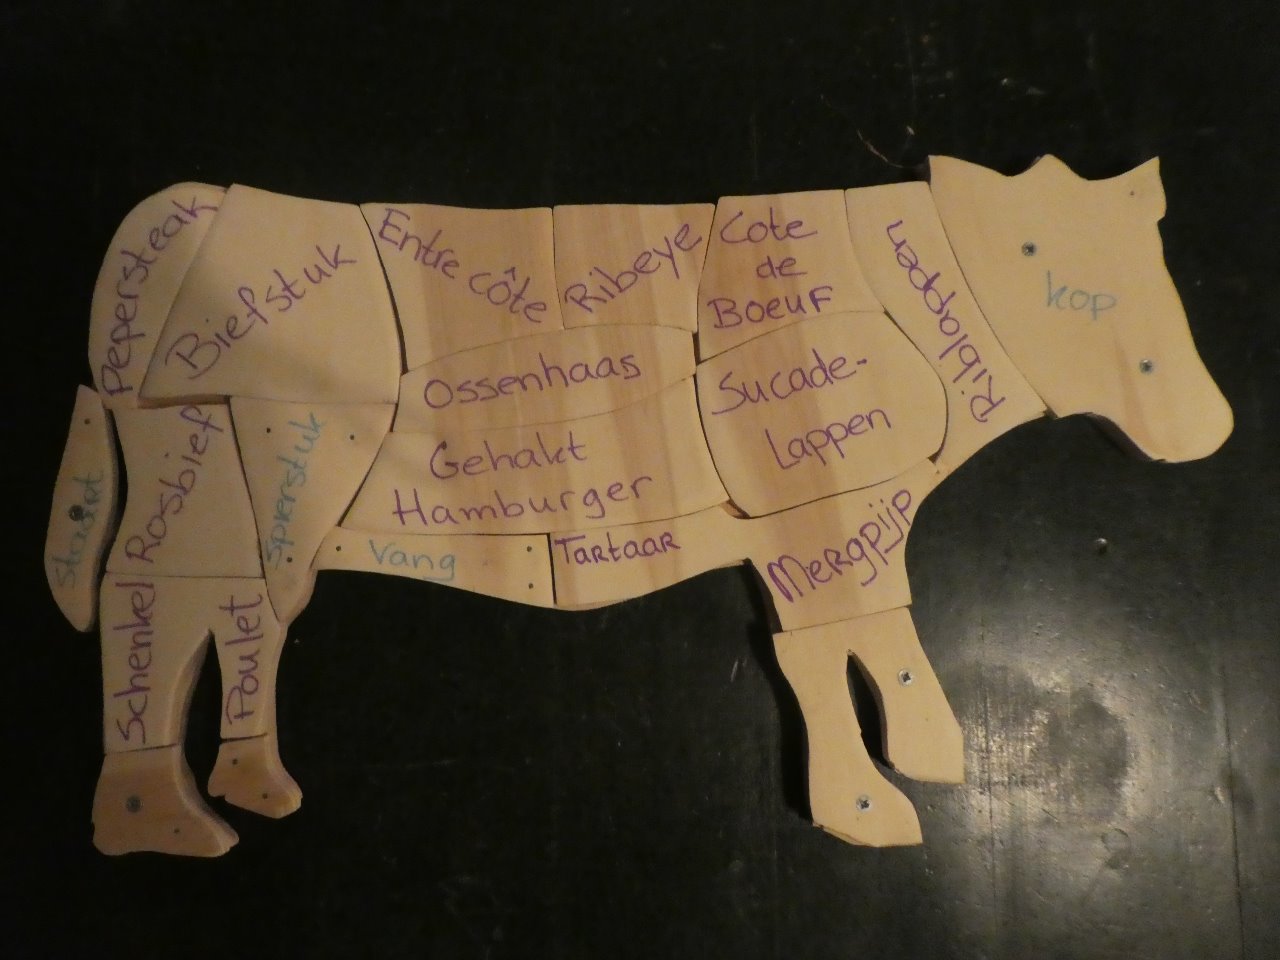 Pepersteak
Biefstuk
Entre côte
Ribeye
Cote
de
Boeuf
Riblappen
kop
Ossenhaas
Sucade-
Lappen
Gehakt
Hamburger
staart
Rosbief
spierstuk
Vang
Tartaar
Mergpijp
Schenkel
Poulet